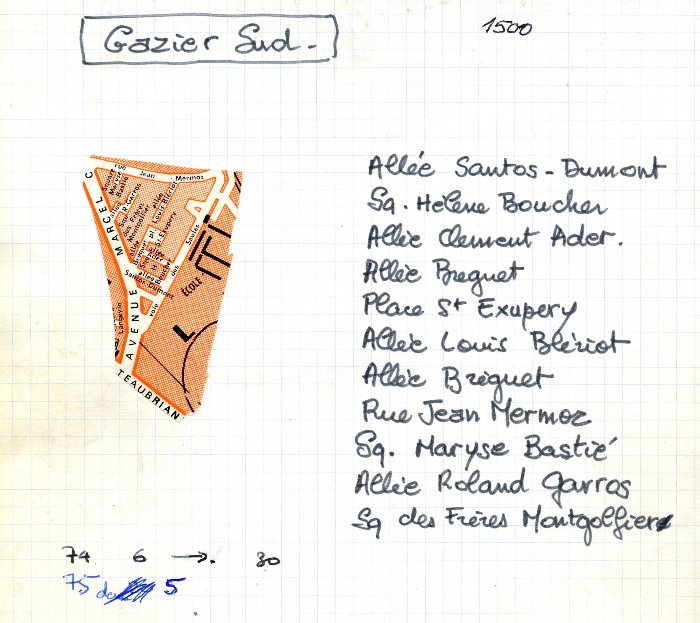 Gazier Sud.
1500
Allée Santos-Dumont
Sq. Hélène Boucher
Allée Clement Ader.
Allée Breguet
Place St Exupery
Allée Louis Blériot
Allée Bréguet
Rue Jean Mermoz
Sq. Maryse Bastié
Allée Roland Garros
Sq des Frères Montgolfier
rue Jean Mermoz
MARCEL C
AVENUE
Santos-Dumont
voie des Saules
ÉCOLE
TEAUBRIAN
74 6 →. 30
75 de 5